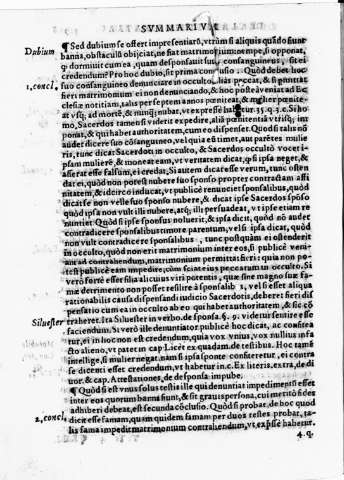 SVMMARIVM
¶ Sed dubium se offert in presentiarū, vtrùm si aliquis quādo fiunt
Dubium
banna, obstaculū obijciat, ne fiat matrimoniū: nempe, si opponat,
ꝗ dormiuit cum ea, quam desponsauit suꝰ consanguineus, sit ei
credendum? Pro hoc dubio, sit prima conclusio. Quòd debet hoc
1. concl.
suo consanguineo denuntiare in occulto,
fieri matrimonium ei non denuntiando, & hoc postea veniat ad Ec
clesiæ notitiam, talis per septem annos pœniteat, & mulier pœnite
at vsq; ad mortē, & nunq; nubat, vt expressè habetur 35. q. 3. c. Si ho
mo, Sacerdos tamen si viderit expedire, aliā pœnitentiā vtrisq; im
ponat, & qui habet authoritatem, cum eo dispenset. Quòd si talis nō
audet dicere suo cōsanguineo, vel quia est timet, aut parētes mulie
ris, tunc dicat Sacerdoti in occulto, & Sacerdos occultò vocet i-
psam mulierē, & moneat eam, vt veritatem dicat, ꝗ si ipsa neget, &
asserat esse falsum, ei credat, Si autem dicat esse verum, tunc osten
dat ei, quòd non potest nubere suo sponso propter contractam affi
nitatem, & ideirco inducat, vt publicè renunciet sponsalibus, quòd
dicat se non velle suo sponso nubere, & dicat ipse Sacerdos spōso
quòd ipsa non vult illi nubere, atq; illi persuadeat, vt ipse etiam re
nuntiet Quòd si ipse sponsus noluerit, & ipsa dicit, quòd nō audet
contradicere sponsalibus timore parentum, vel si ipsa dicat, quòd
non vult contradicere sponsalibus, tunc postquàm ei ostenderit
in occulto, quòd non erit matrimonium inter eos, si publicè veni-
ant ad contrahendum, matrimonium permittat fieri: quia non po-
test publicè eam impedire, cùm sciat eius peccatum in occulto. Si
verò fortè esset filia alicuius viri potentis, quæ sine magno suæ fa-
mæ detrimento non posset resilire à sponsalibꝰ, vel si esset aliqua
rationabilis causa dispensandi iudicio Sacerdotis, debere: fieri dis
pensatio cum ea in occulto ab eo qui haberet authoritatem, & sic cō
Siluester
traheret. Ita Siluester in verbo. de sponsa. §. 9. videtur sentire esse
faciendum. Si verò ille denuntiator publicè hoc dicat, ac confitea
tur, ei in hoc non est credendum, quia vox vnius, vox nullius in fa
cto alieno, vt patet in cap. Licèt ex quadam. de testibus. Hoc tamē
intellige, si mulier negat, nam si ipsa sponte confiteretur, ei contra
se dicenti esset credendum, vt habetur in c. Ex literis, extra, de di
uor. & cap. Attestationes, de desponsa. impube.
¶ Quòd si est vnus solus testis ille qui denuntiat impedimētū esset
inter eos quorum banna fiunt, & sit grauis persona, cui meritò fides
2. concl.
adhiberi debeat, est secunda cōclusio. Quòd si probat, de hoc quod
dicit esse famam, quam quidem famam per duos testes probat, ta-
lis fama impedit matrimonium contrahendum, vt expresse habetur.
4. q.